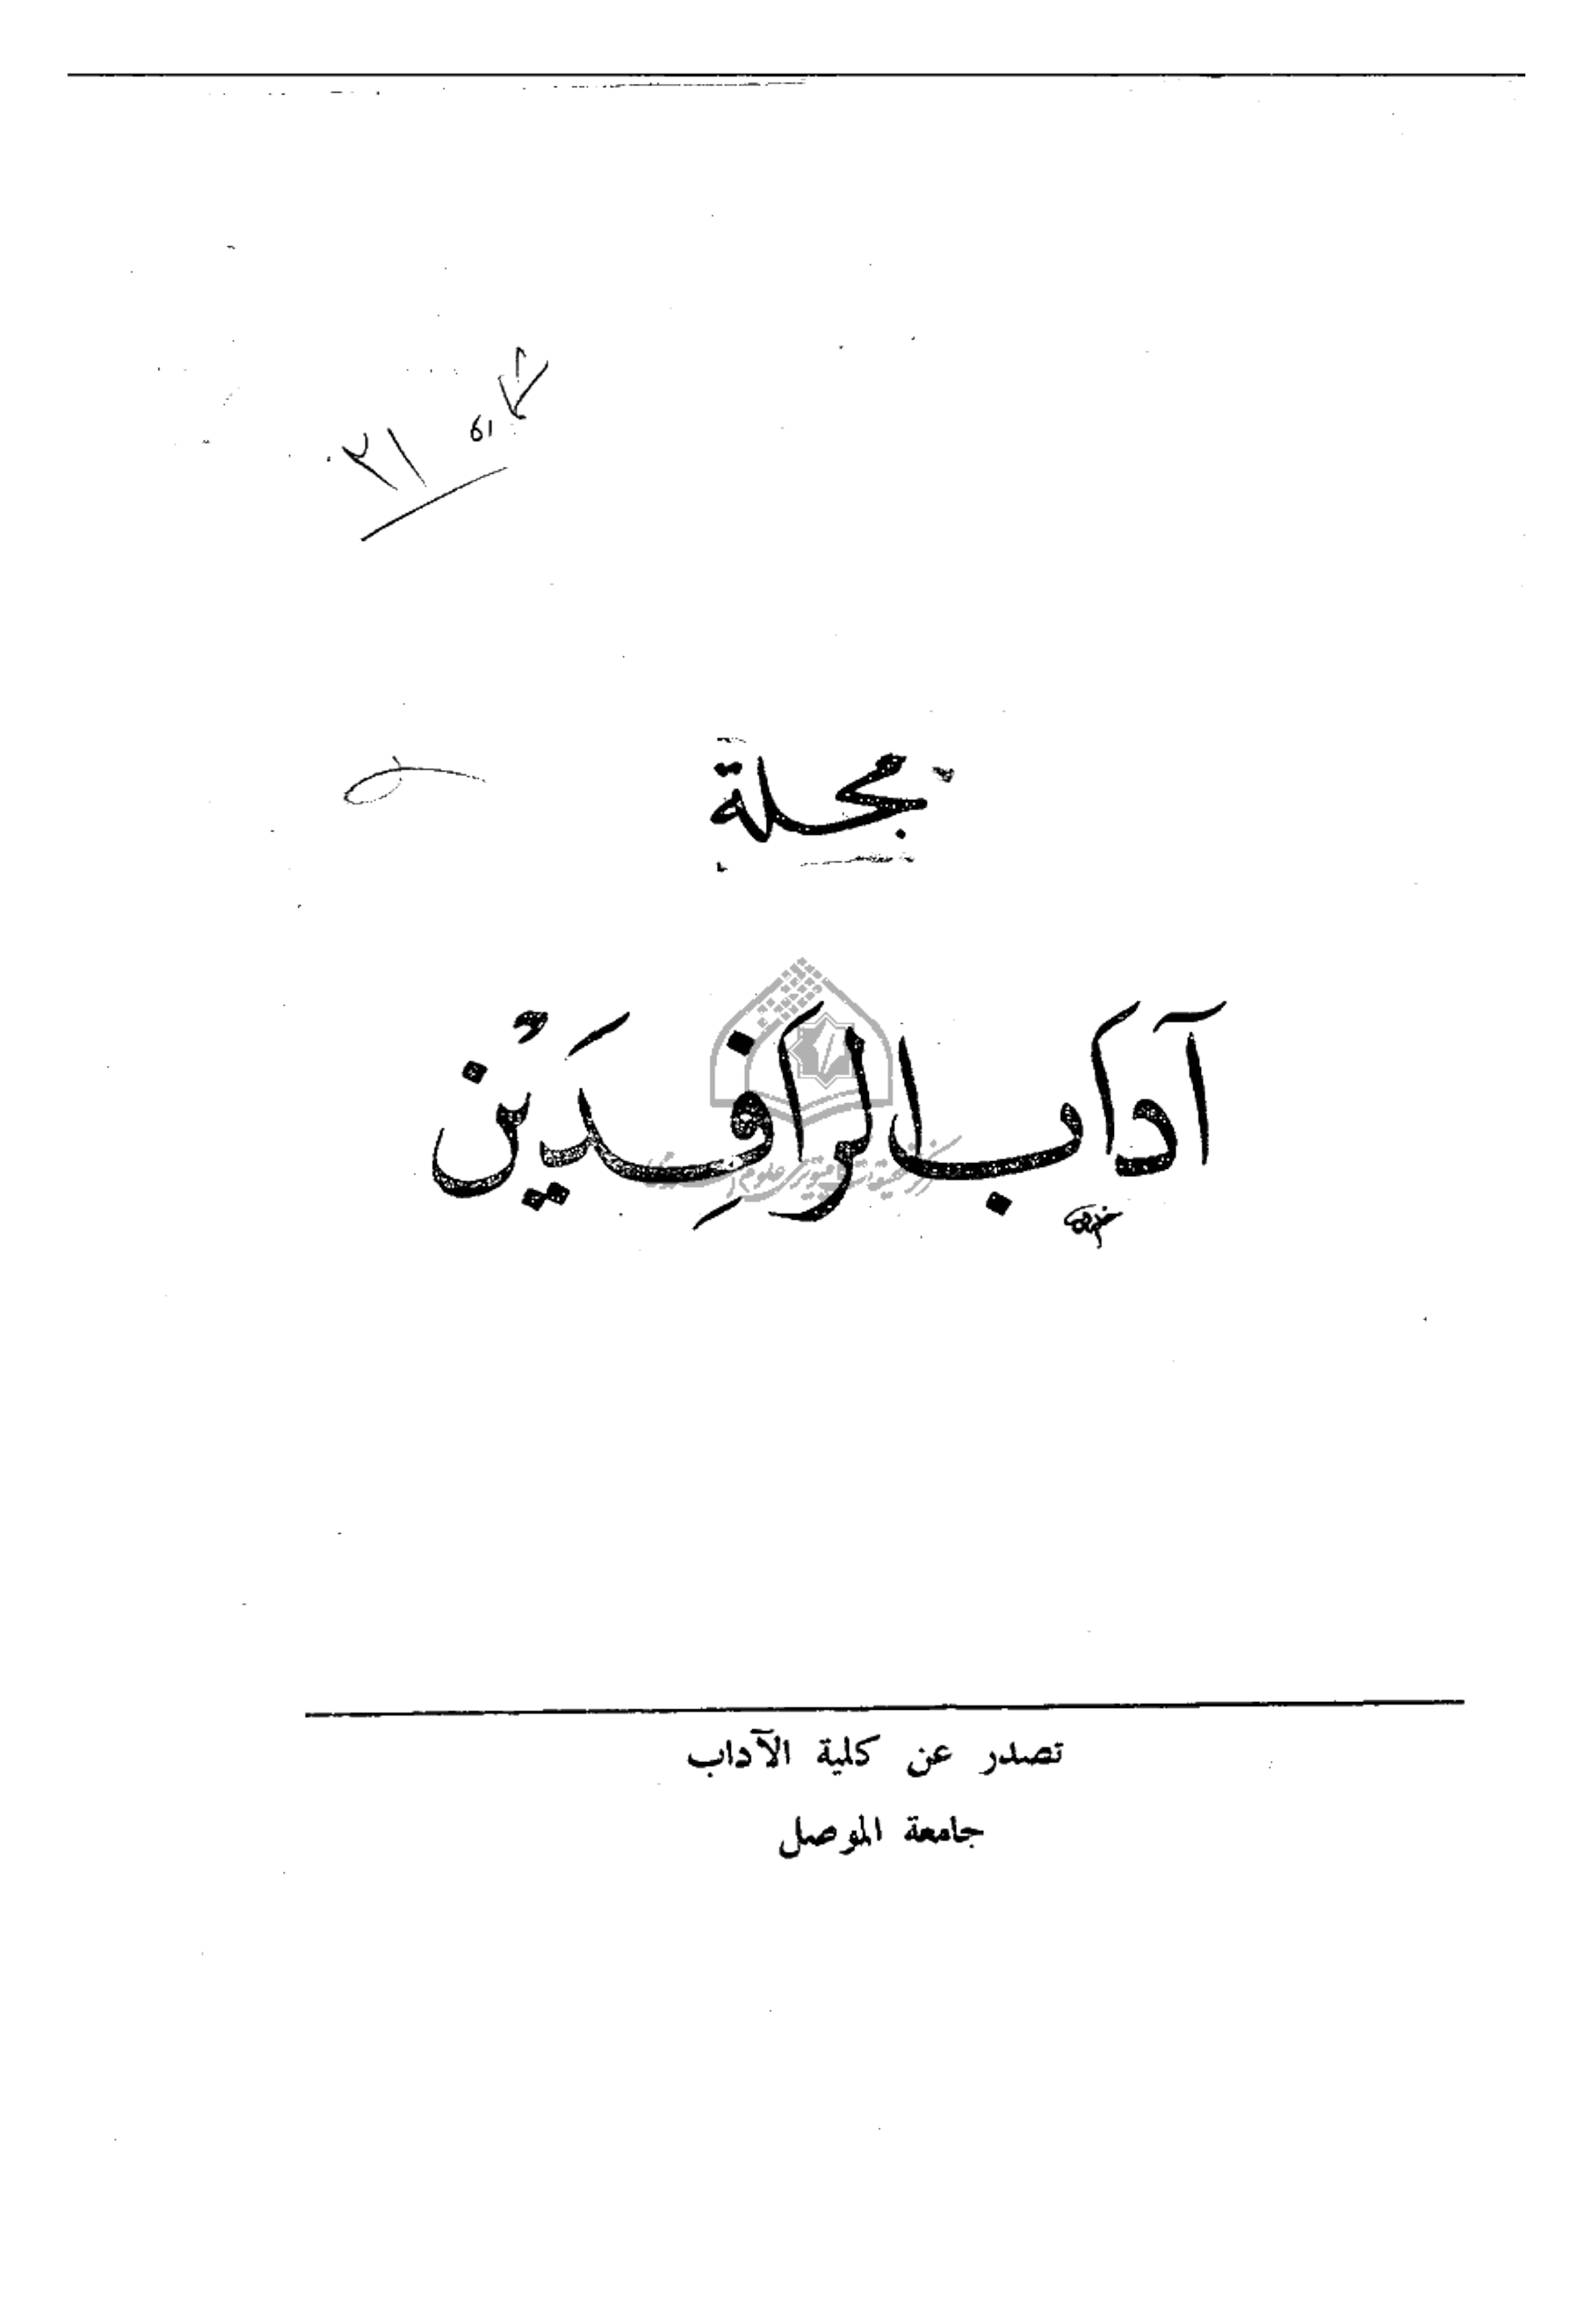 مجلة
آدَابُ الرَافِدَيْن
تصدر عن كلية الآداب
جامعة الموصل